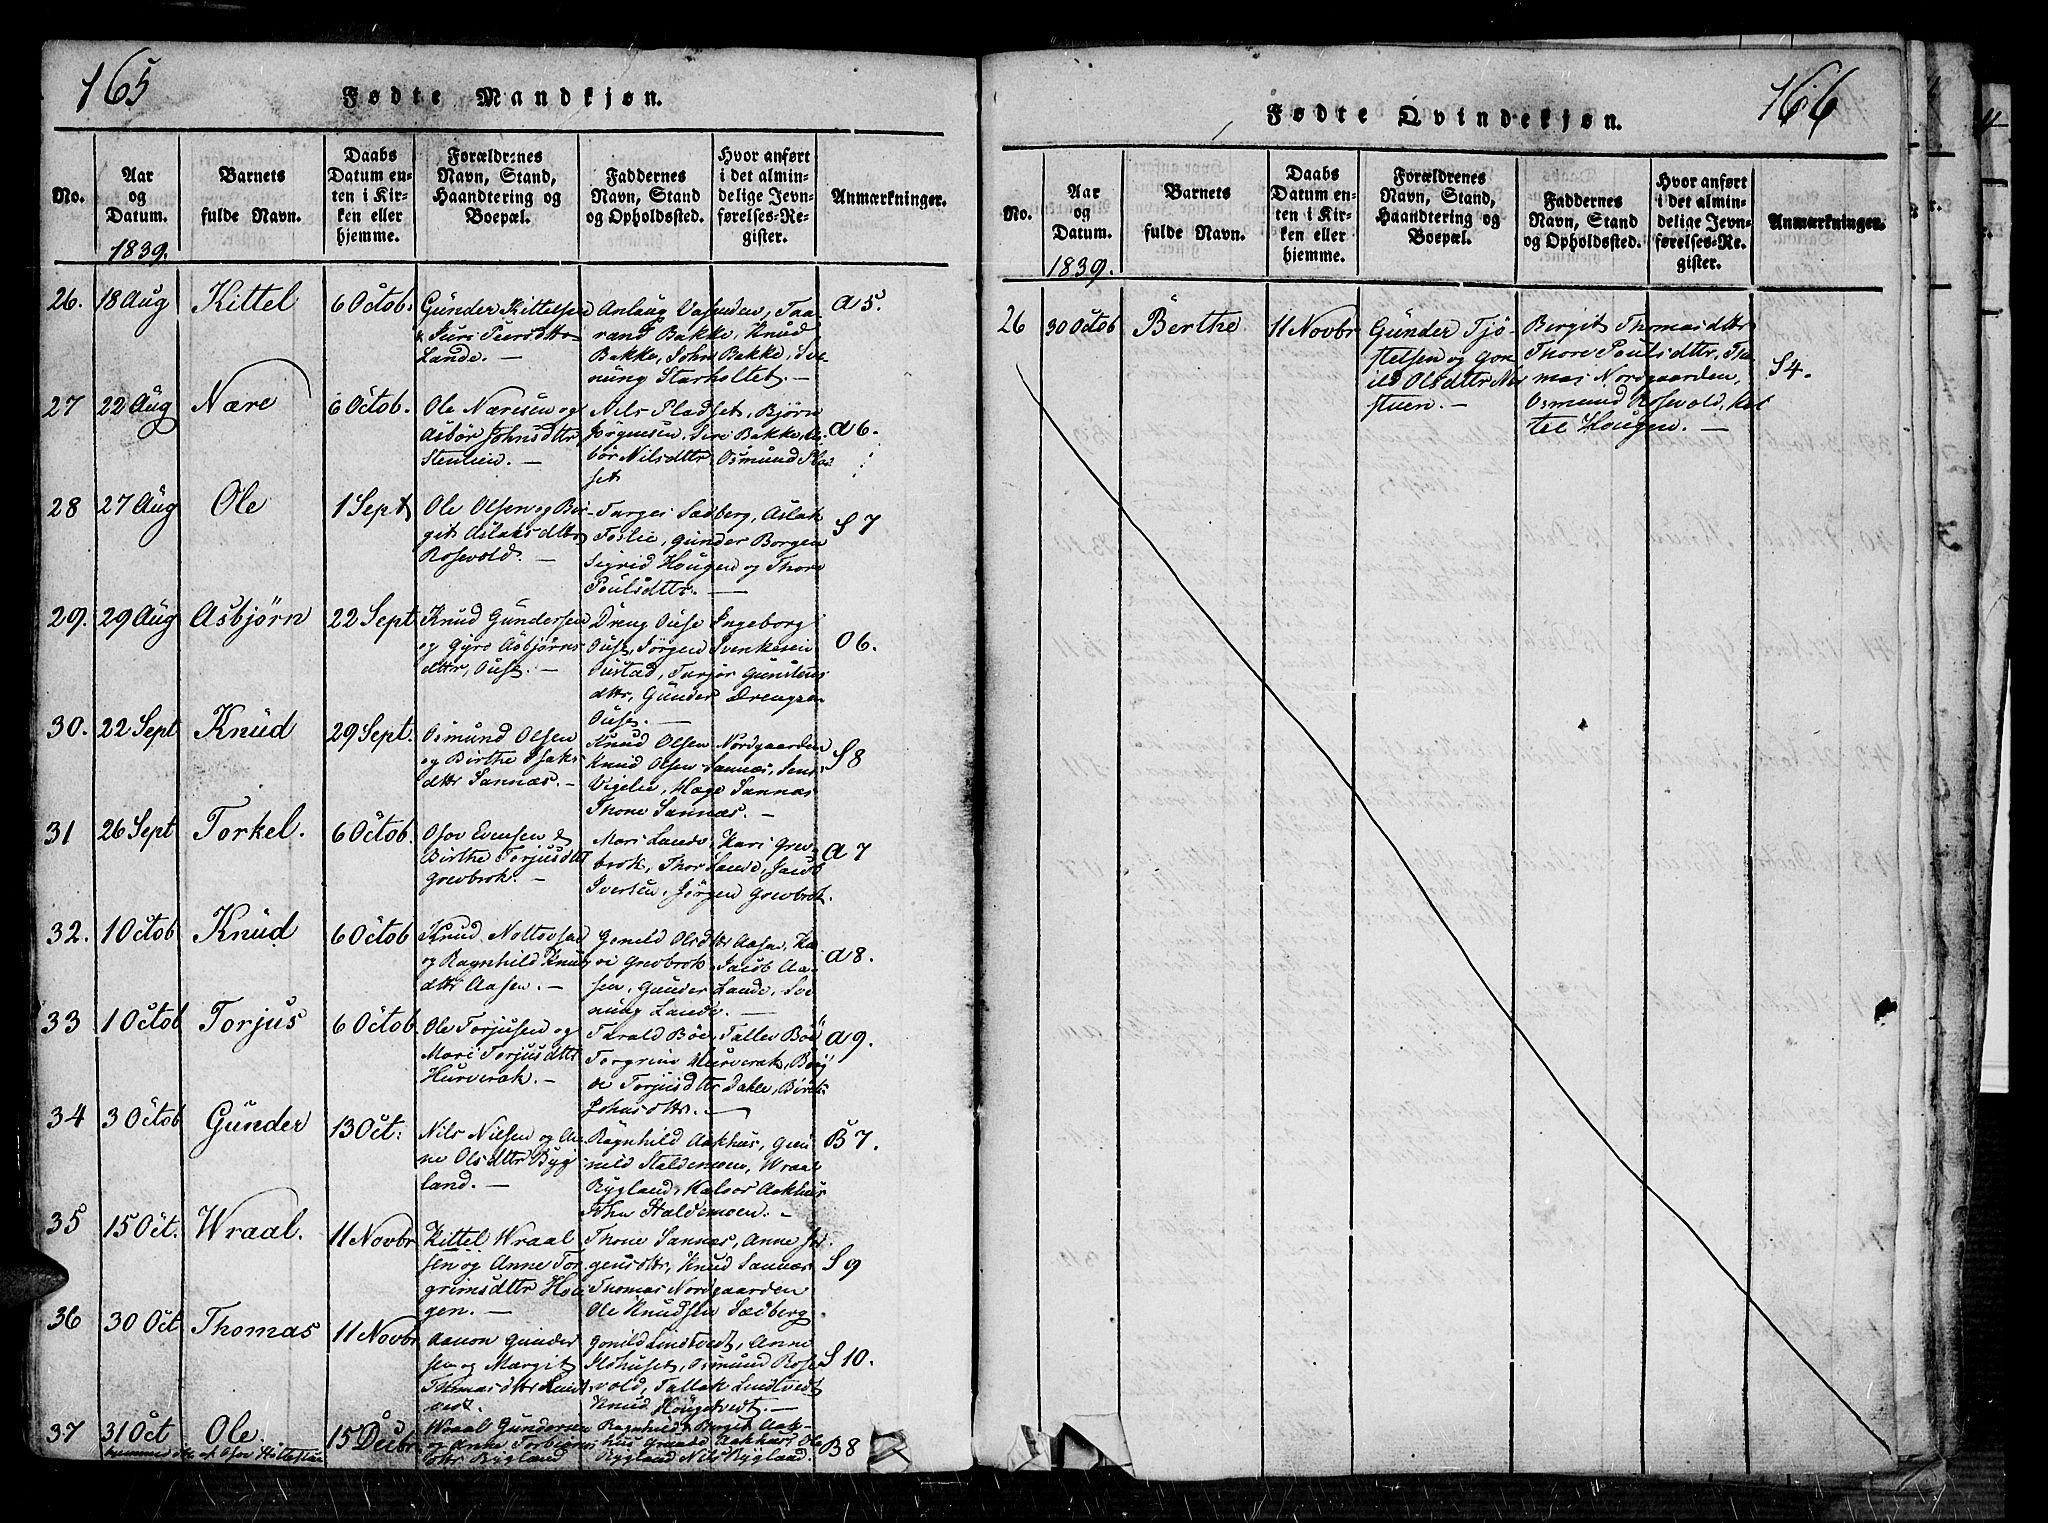 165
Fødte Mandkjøn.
No.
Aar
og
Datum.
1839.
Barnets
fulde Navn.
Daabs
Datum en-
ten i Kir-
ken eller
hjemme.
Forældrenes
Navn, Stand,
Haandtering og
Boepæl.
Faddernes
Navn, Stand
og Opholdssted.
Hvor anført
i det almin-
delige Jevn-
førelses-Re-
gister.
Anmærkninger.
26. 18 Aug Kittel 6 Octob.
Gunder Kittelsen
& Siri Peersdttr
Lande. —
Anlaug Vasenden, Taa-
rand Bakke, Knud
Bakke, John Bakke, Sve-
nung Starholtet. —
a 5.
27 22 Aug Nære 6 Octob.
Ole Næresen og
Asbør Johnsdttr
Stenlien. —
Nils Pladset, Bjørn
Jørgensen, Siri Bakke, As-
bør Nilsdttr, Osmund Plad-
set
a 6.
28 27 Aug Ole 1 Sept
Ole Olsen og Bir-
git Aslaksdttr
Rosevold. —
Targei Sædberg, Aslak
Foslie, Gunder Borgen
Sigrid Hougen og Thore
Poulsdttr. —
S 7
29. 29 Aug Asbjørn 22 Sept
Knud Gundersen
og Gyro Asbjørns
dttr, Ouse. —
Dreng Ouse Ingeborg
Ouse, Jørgen Svenkesen
Oustad, Tarjer Gunstens
dttr, Gunder Drengsen
Ouse. —
O 6.
30. 22 Sept Knud 29 Sept.
Osmund Olsen
og Birthe Isaks
dttr Sannæs. —
Knud Olsen Nordgaarden
Knud Olsen Sannæs, Jens
Vigelie, Hæge Sannæs
Thone Sannæs. —
S 8
31 26 Sept Torkel. 6 Octob.
Osov Evensen &
Birthe Torjusdttr
Grevbrok. —
Mari Lande, Kari Grev-
brok, Thor Lande, Jacob
Iversen, Jørgen Grevbrok.
a 7
32. 1 Octob Knud 6 Octob
Knud Nottovsen
og Ragnhild Knuds
dttr Aasen. —
Gonild Olsdttr Aasen, Ka-
ri Grevbrok, Jacob Aa-
sen, Gunder Lande, Sve-
nung Lande. —
a 8.
33 1 Octob Torjus 6 Octob
Ole Torjusen og
Mari Torjusdttr
Hurverak. —
Tarald Bøe, Tallev Bøe
Torgrim Hurverak,
Torjusdttr Dale,
Johnsdttr. —
a 9.
34 3 Octob Gunder 13 Oct:
Nils Nielsen og An-
ne Olsdttr Byg
land. —
Ragnhild Aakhus, Gun-
nild Staldemoen, Wraal
Bygland, Kalsor Aakhus
John Staldemoen. —
B 7.
35 15 Oct. Wraal. 11 Novbr
Kittel Wraal
sen og Anne Tor
grimsdttr Hou
gen. —
Thone Sannæs, Anne Jør
gensdttr, Knud Sannæs
Thomas Nordgaarden
Ole Knudsen Sædberg
S 9
36 30 Oct Thomas 11 Novbr
Aanon Gunder
sen og Margit
Thomasdttr Lindt
vedt.
Gonild Lindtvedt, Anne
Ildhuset, Osmund Rose-
vold, Tallak Lindtvedt
Knud Hougetvedt. —
S 10.
37 31 Oct Ole. 15 Decbr
Wraal Gundersen
og Anne Torbjørns
dttr Bygland
Ragnhild & Birgit Aak-
hus Gunder Aakhus, Ole
Bygland Nils Bygland.
B 8
166
Fødte Qvindekjøn.
No.
Aar
og
Datum.
1839.
Barnets
fulde Navn.
Daabs
Datum en-
ten i Kir-
ken eller
hjemme.
Forældrenes
Navn, Stand,
Haandtering og
Boepæl.
Faddernes
Navn, Stand
og Opholdssted.
Hvor anført
i det almin-
delige Jevn-
førelses-Re-
gister.
Anmærkninger.
26 30 Octob Berthe 11 Novbr
Gunder Tjö-
stelsen og Gon
ild Olsdttr Ne
stuen. —
Birgit Thomasdttr
Thore Poulsdttr, Tho-
mas Nordgaarden,
Osmund Rosevold, Kit
tel Hougen. —
S 4.